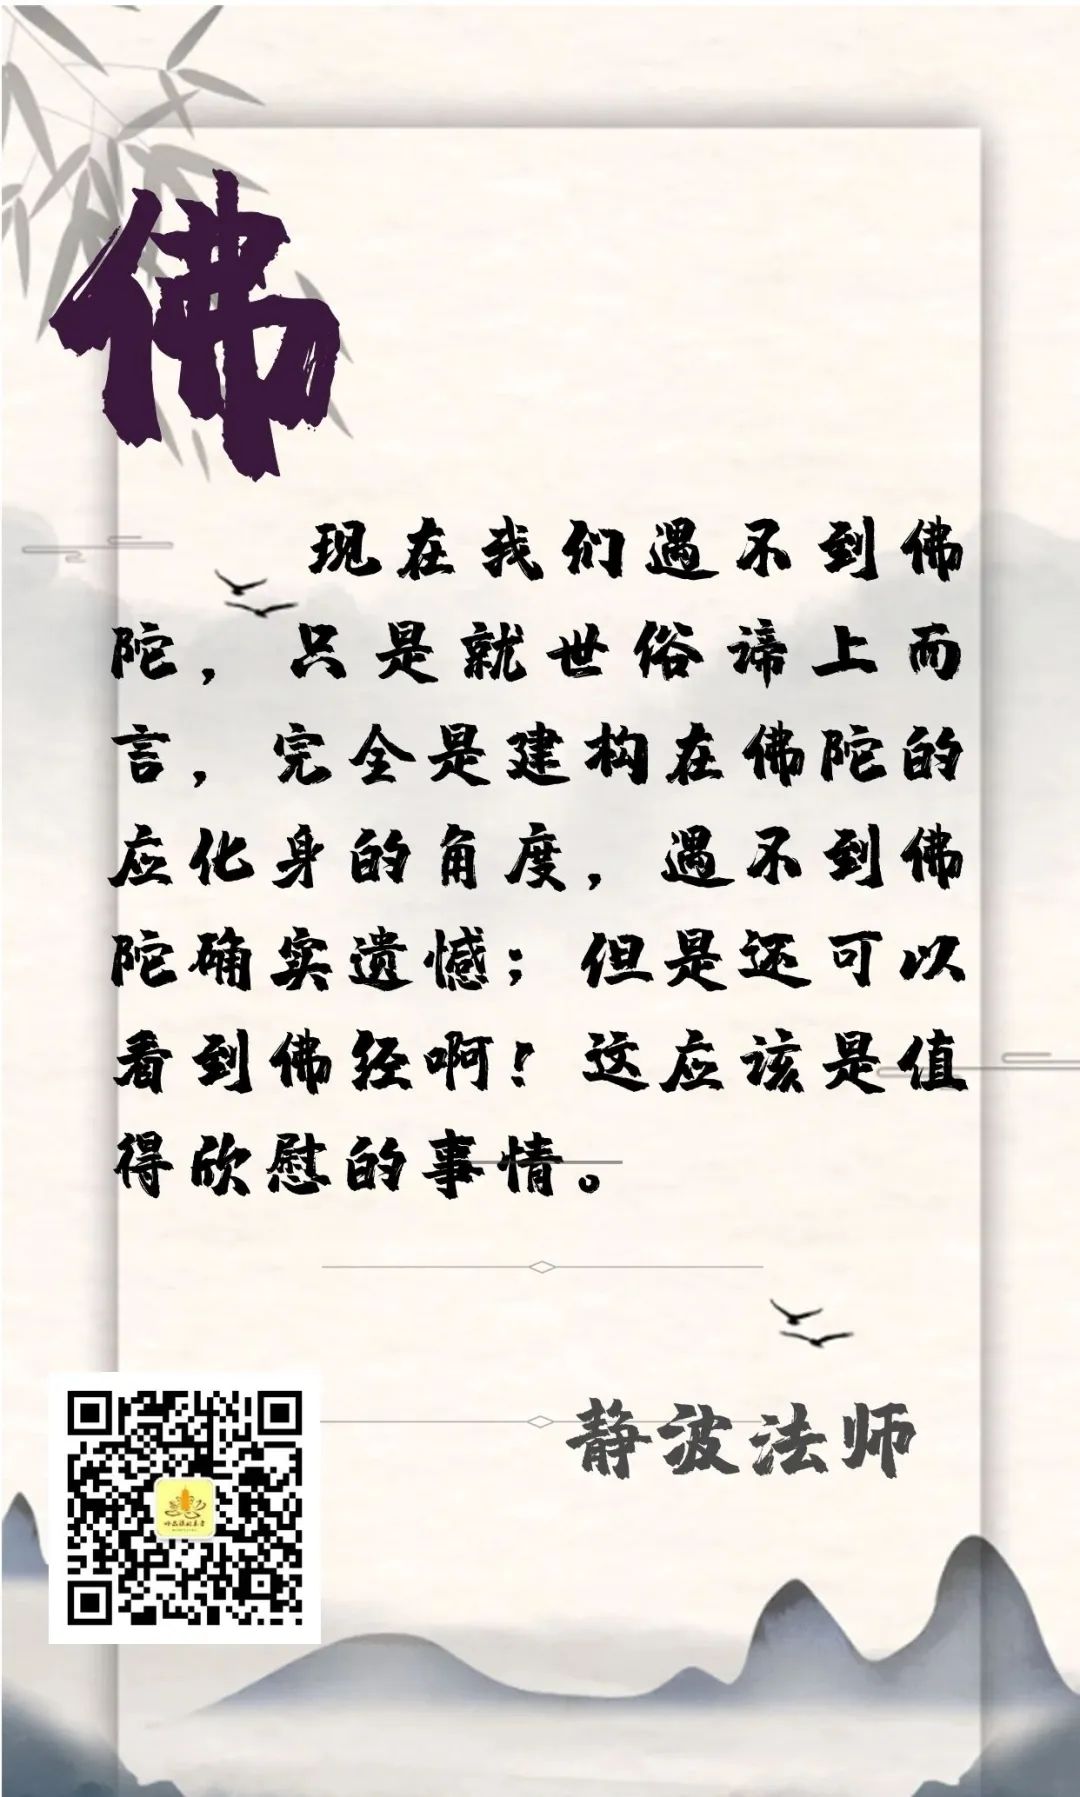 佛
现在我们遇不到佛
陀，只是就世俗谛上而
言，完全是建构在佛陀的
应化身的角度，遇不到佛
陀确实遗憾；但是还可以
看到佛经啊！这应该是值
得欣慰的事情。
静波法师